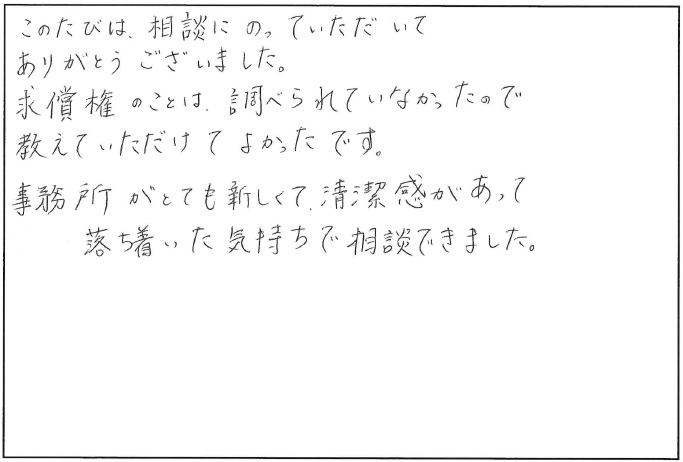 このたびは、相談にのっていただいて
ありがとうございました。
求償権のことは、調べられていなかったので
教えていただけてよかったです。
事務所がとても新しくて、清潔感があって
落ち着いた気持ちで相談できました。